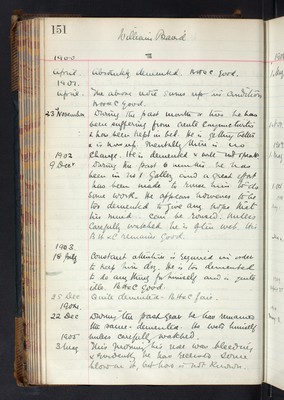 151
William Baird
1900
April. Absolutely demented. B.H & C good.
1901.
April. The above note sums up his condition
B.H & C good.
23 November. During the past month & more he has
been suffering from acute
& has been kept in bed. He is getting better
& is now up. Mentally there is no
1902 change. He is demented & will not speak
9 Decr During the past 6 months he has
been in No 1 Gallery and a great effort
has been made to rouse him to do
some work. He appears however to be
too demented to give any hope that
his mind can be roused. Unless
carefully watched he is often wet. His
B.H & C remains good.
1903.
18 July Constant attention is required in order
to keep him dry. He is too demented
to do anything for himself and is quite
idle. B.H & C good.
25 Dec Quite demented. B.H & C fair.
1904.
22 Dec During the past year he has remained
the same - demented. He wets himself
1905 unless carefully watched.
3 May This morning his nose was bleeding
& evidently he has received some
blow on it, but how is not known.